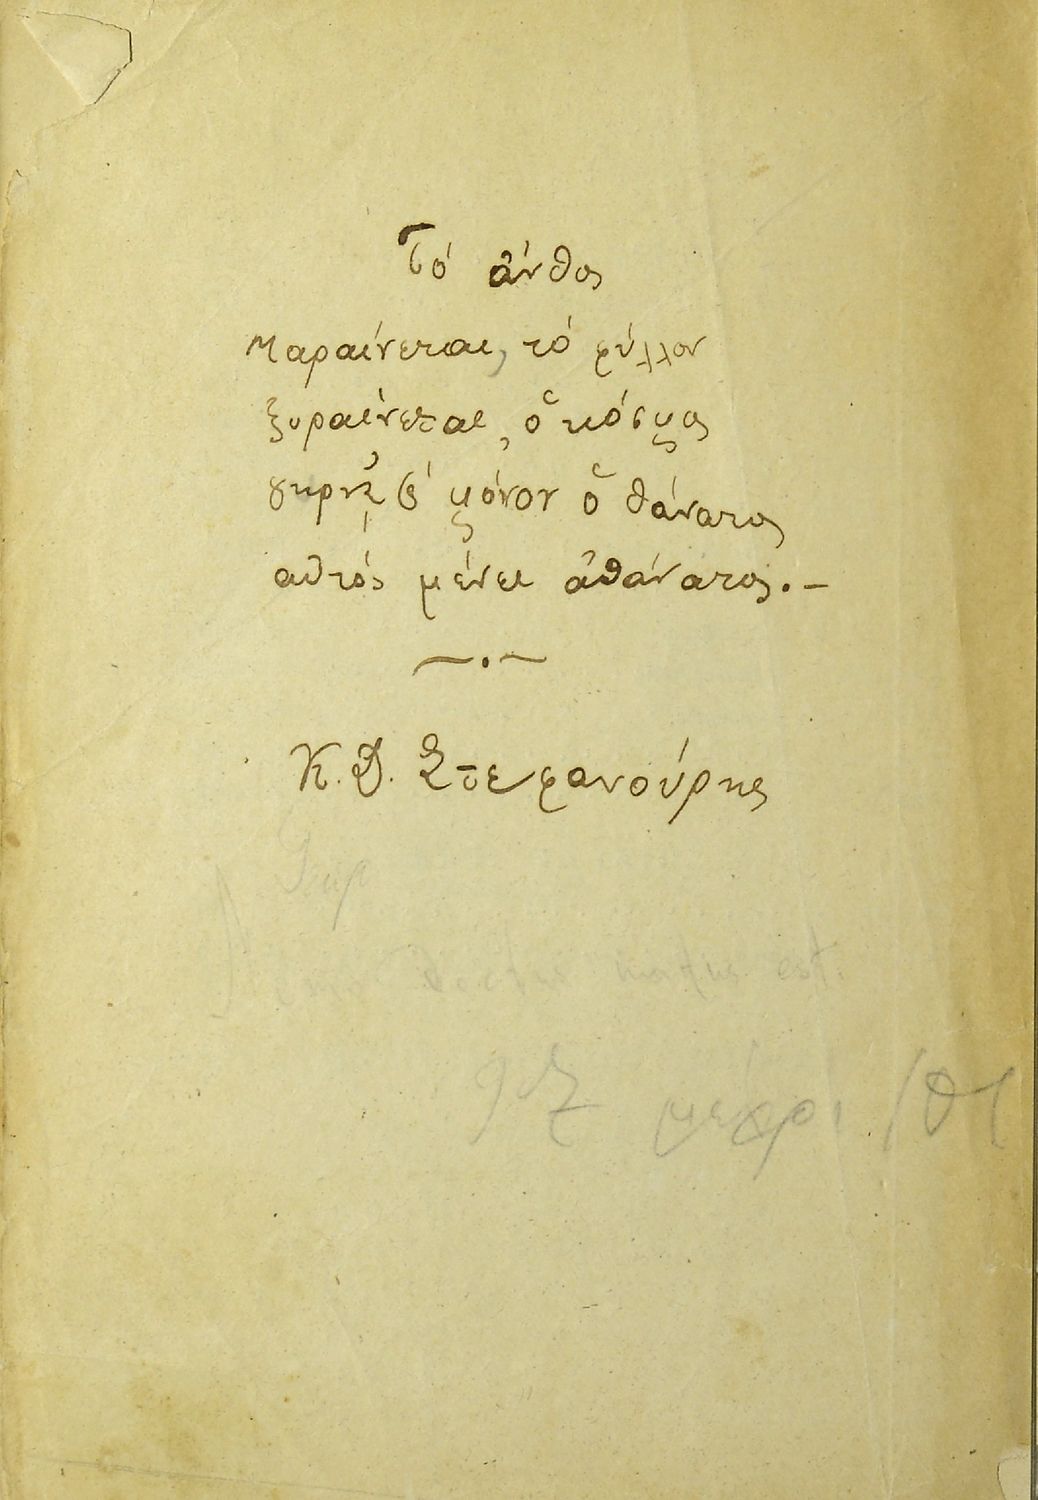 Τό ἄνθος
Μαραίνεται, τό φύλλον
ξυραίνεται, ὁ κόσμος
γηρνᾷ κ' μόνον ὁ θάνατος
αὐτός μένει ἀθάνατος.–
~.~
Κ. Δ. Στεφανούρης
est.
μέχρι